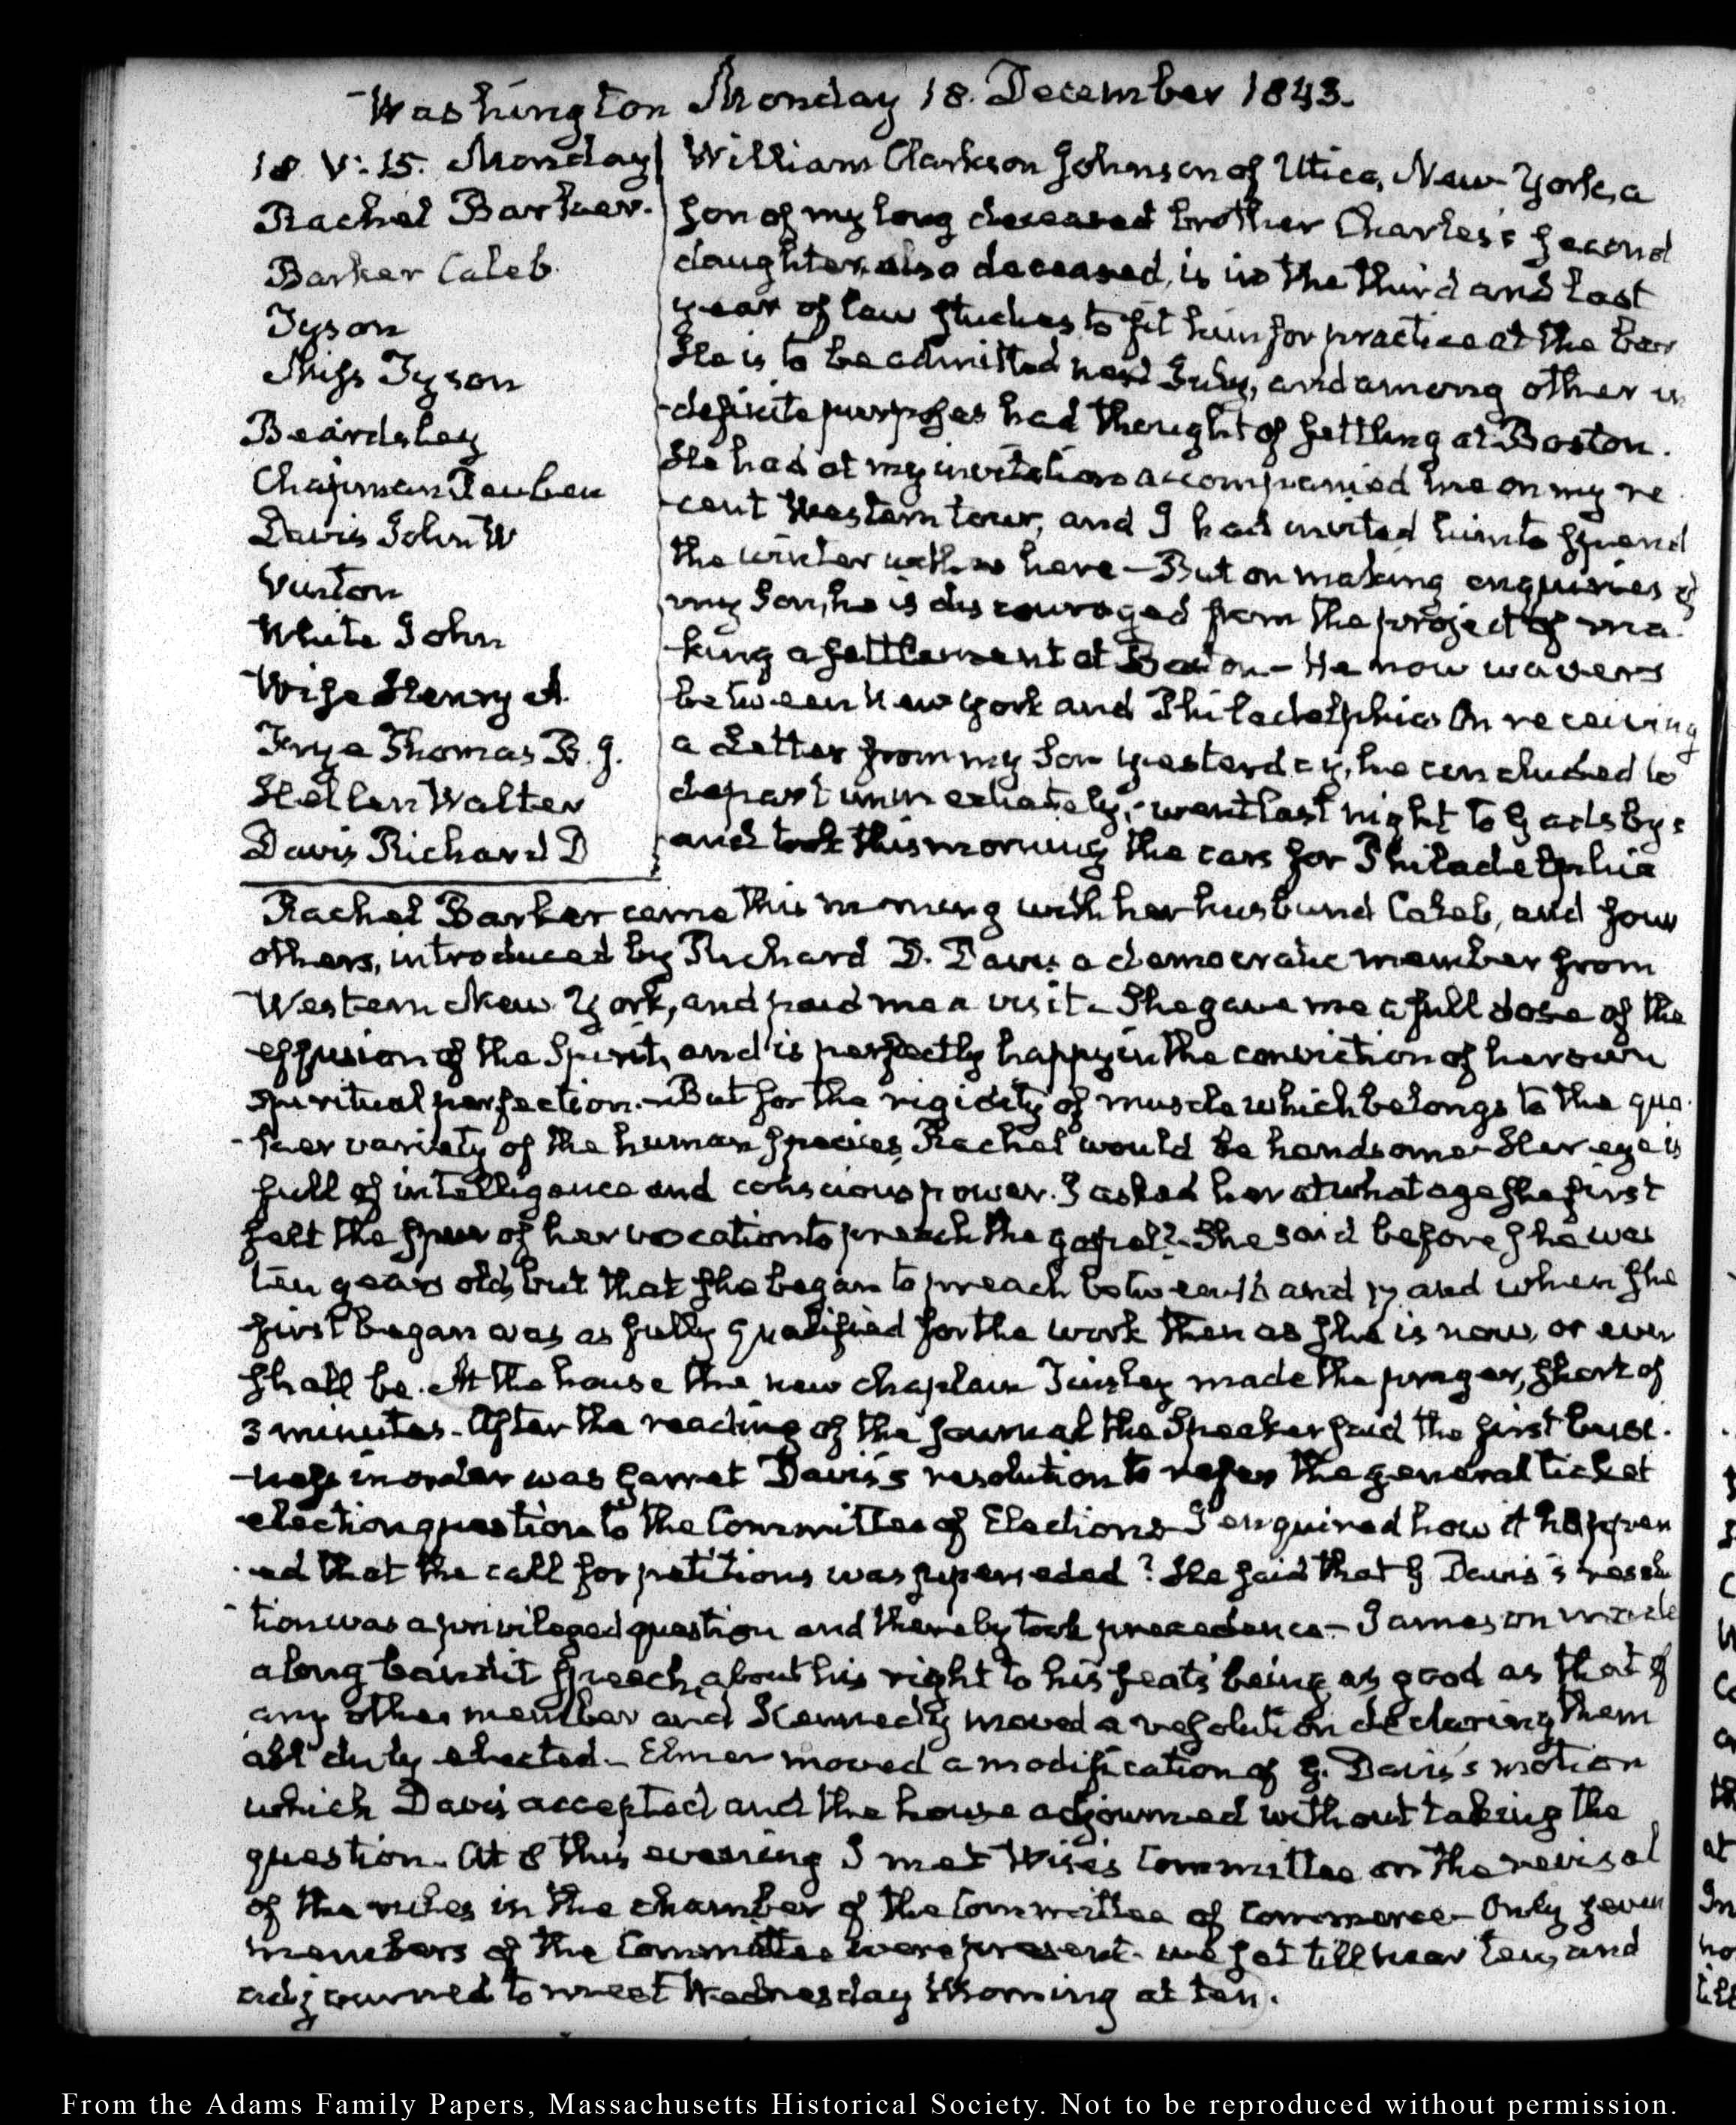 Washington Monday 18. December 1843.
18. V: 15. Monday
Rachel Barker.
Barker Caleb.
Tyson
Miss Tyson
Beardsley
Chapman Reuben
Davis John W
Vinton
White John
Wise Henry A.
Frye Thomas B. J.
Hellen Walter
Davis Richard D
William Clarkson Johnson of Utica, New York, a
son of my long deceased brother Charles's second
daughter, also deceased, is in the third and last
year of law studies to fit him for practice at the bar
He is to be admitted next July, and among other in
-definite purposes had thought of settling at Boston.
He had at my invitation accompanied me on my re
-cent Western tour, and I had invited him to spend
the winter with us here — But on making enquiries of
my Son, he is discouraged from the project of ma-
-king a settlement at Boston — He now wavers
between New York and Philadelphia On receiving
a Letter from my Son yesterday, he concluded to
depart immediately; went last night to Gadsby's
and took this morning the cars for Philadelphia
Rachel Barker came this morning with her husband Caleb, and four
others, introduced by Richard D. Davis a democratic member from
Western New York, and paid me a visit — She gave me a full dose of the
effusion of the Spirit, and is perfectly happy in the conviction of her own
spiritual perfection. — But for the rigidity of muscle which belongs to the qua-
-ker variety of the human species, Rachel would be handsome — Her eye is
full of intelligence and conscious power. I asked her at what age she first
felt the spur of her vocation to preach the gospel? She said before she was
ten years old, but that she began to preach between 16 and 17 and when she
first began was as fully qualified for the work then as she is now, or ever
shall be. At the house the new chaplain Tinsley made the prayer, short of
3 minutes. After the reading of the journal the Speaker said the first busi-
-ness in order was Garret Davis's resolution to refer the general ticket
election question to the Committee of Elections — I enquired how it happen
-ed that the call for petitions was superseded? He said that G Davis's resolu
-tion was a privileged question and thereby took precedence — Jameson made
a long bandit speech, about his right to his seats being as good as that of
any other member and Kennedy moved a resolution declaring them
all duly elected — Elmer moved a modification of G. Davis's motion
which Davis accepted and the house adjourned without taking the
question. At 8 this evening I met Wise's Committee on the revisal
of the rules in the chamber of the Committee of Commerce — Only seven
members of the Committee were present. we sat till near ten, and
adjourned to meet Wednesday Morning at ten.
From the Adams Family Papers, Massachusetts Historical Society. Not to be reproduced without permission.